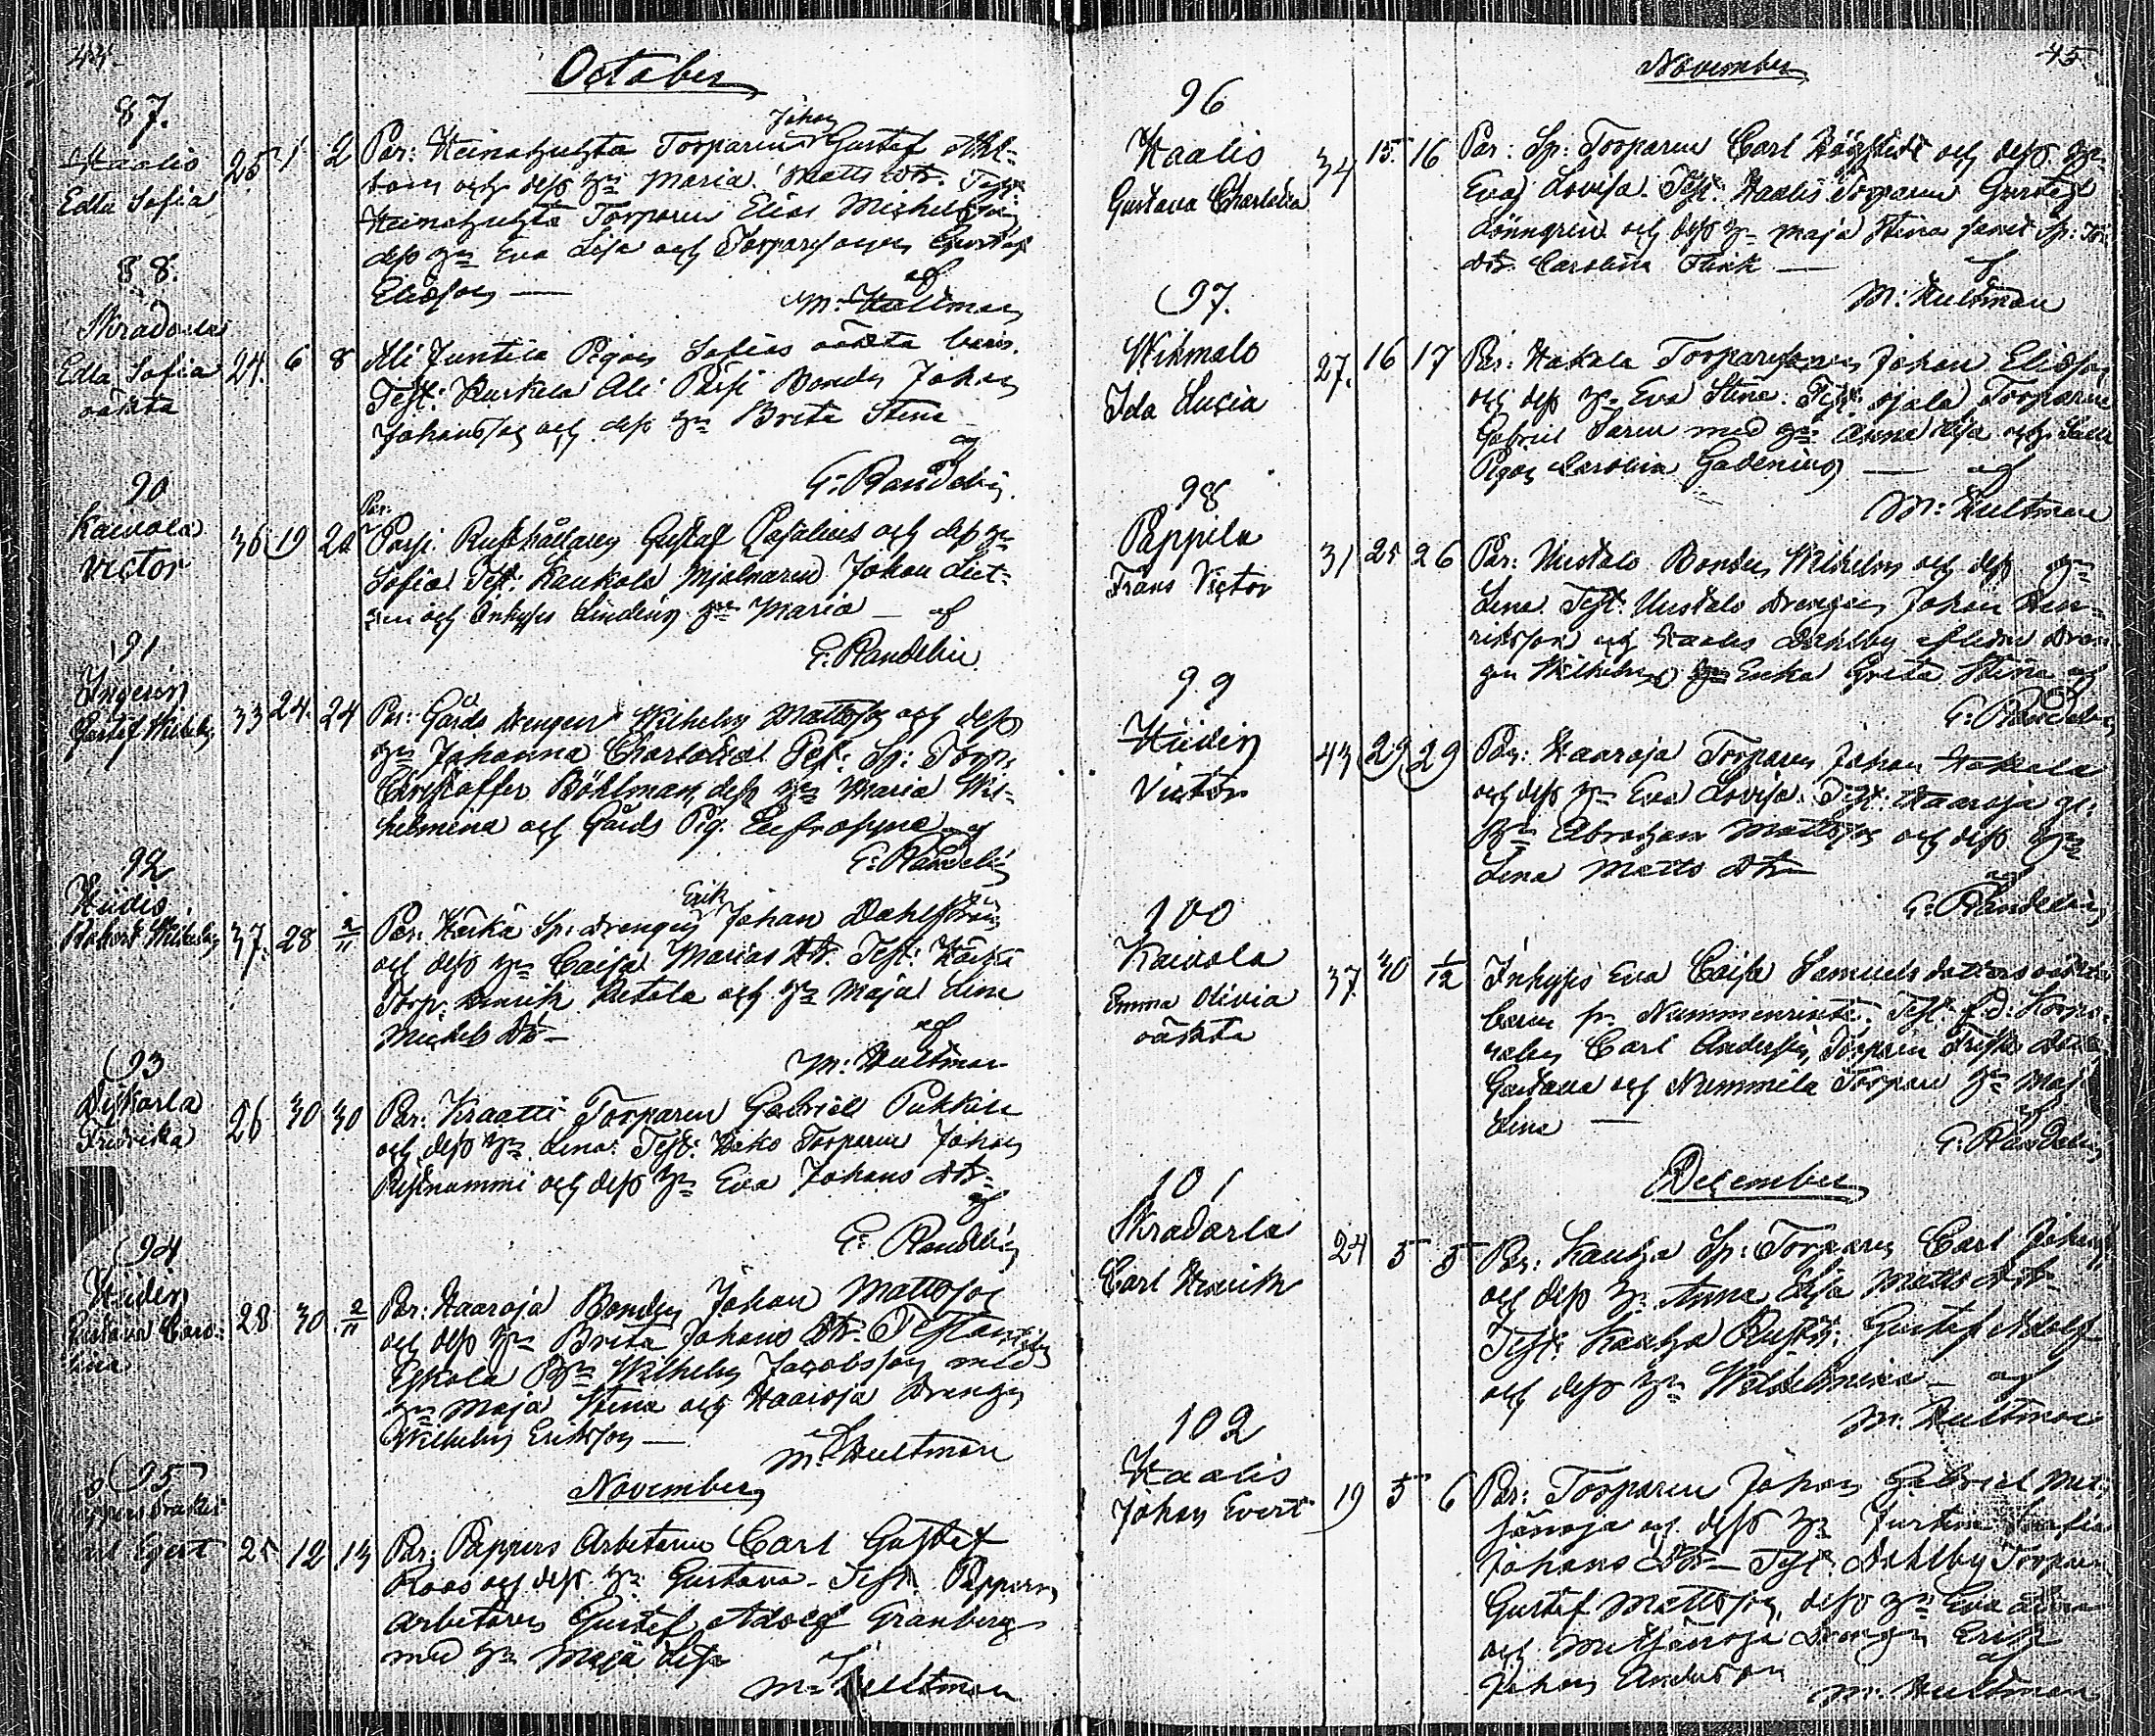 44
October
87.
Haalis
Edla Sofia
25 1 2
Johan
Par: Heinahuhta Torparen Gustaf
och dess hu Maria Matts dr. Test:
Heinahuhta Torparen Elias Michelsson
dess hu Eva Lisa och Torparesonen Gustaf
Eliasson — af
M. Hultman
88.
Skradarla
Edla Sofia
oäkta
24. 6 8
Ali Juntila Pigan Sofias oäkta barn.
Test: Kurkela Ali Bonden Johan
Johansson och dess hu Brita Stina
af
G. Randelin
90
Kaivola
Victor
36 19 20
Par:
Rusthållaren Gustaf och dess hu
Sofia Test: Kaukola Mjölnaren Johan
och Inhyses Lindin hu Maria — af
G. Randelin
91
Ingerin
Gustaf Wilhelm
33 24. 24
Par: Gårds drengen Wilhelm Mattsson och dess
hu Johanna Charlotta Test: Sp: Torp:
Christoffer Böhlman, dess hu Maria Wil-
helmina och Gårds Pig. af
G. Randelin
92
Hiidis
Robert Wilhelm
37. 28 2/11
Erik
Par: Kärkä Sp: drengen Johan Dahlström
och dess hu Caisa Marias dr. Test: Kärkä
Torp. Henrik och hu Maja Lena
Michels dr — af
M. Hultman
93
Dyskarla
Fredrika
26 30 30
Par: Kraatti Torparen Gabriel
och dess hu Lena. Test: Torparen Johan
Ristnummi och dess hu Eva Johans dr —
af
G. Randelin
94
Hiiden
Gustava Caro-
lina
28 30 2/11
Par: Haaroja Bonden Johan Mattsson
och dess hu Brita Johans dr. Test:
Eskola Bn Wilhelm Jacobsson med
hu Maja Stina och Haaroja Drengen
Wilhelm Eriksson —
M. Hultman
November
95
25 12 13
Par: Pappers Arbetaren Carl Gustaf
Roos och dess hu Gustava — Test: Pappers
arbetaren Gustaf Adolf Granberg
med hu Maja Lisa
M. Hultman
45
November
96
Haalis
Gustava Charlotta
34 15. 16
Par: Sp: Torparen Carl och dess hu
Eva Lovisa. Test: Haalis Torparen Gustaf
Lönngren och dess hu Maja Stina samt Sp: Tor.
dr. Carolina Flink — af
M. Hultman
97.
Wihmalo
Ida Lucia
27. 16 17
Par: Hakala Torparesonen Johan Eliasson
och dess hu Eva Stina. Test: Ojala Torparen
Gabriel Saren med hu Anna Lisa och
Pigan Carolina Gadenius — af
M. Hultman
98
Pappila
Frans Victor
31 25 26
Par: Uustalo Bonden Wilhelm och dess hu
Lena. Test: Uustalo drengen Johan Hen-
riksson och Haalis Dahlby aflidne Dren-
gen Wilhelms Enka Greta Stina af
G. Randelin
99
Hiiden
Victor
43 29 29
Par: Haaroja Torparen Johan Hakala
och dess hu Eva Lovisa. Test: Haaroja gl:
Bn Abraham Mattsson och dess hu
Lena Matts dr —
af
G. Randelin
100
Kaivola
Emma Olivia
oäkta
37. 30 1/12
Inhyses Eva Caisa Samuels dotters oäkta
barn fr. Nummenriste. Test: f.d. Korpo-
ralen Carl Anderssin, Torparen
Gustava och Nummila Torpare hu Maj
Lena — af
G. Randelin
December
101
Skradarla
Carl Henrik
24 5 5
Par: Kauha Sp: Torparen Carl Johan
och dess hu Anna Lisa Matts dr.
Test: Kauha Rusth: Gustaf Adolf
och dess hu Wilhelmina — af
M. Hultman
102
Haalis
Johan Evert
19 5 6
Par: Torparen Johan Gabriel Met-
sänoja och dess hu Justina Sofia
Johans dr — Test: Dahlby Torparen
Gustaf Mattsson, dess hu Eva
och Metsänoja Drengen Erik
Johan Andersson af
M. Hultman